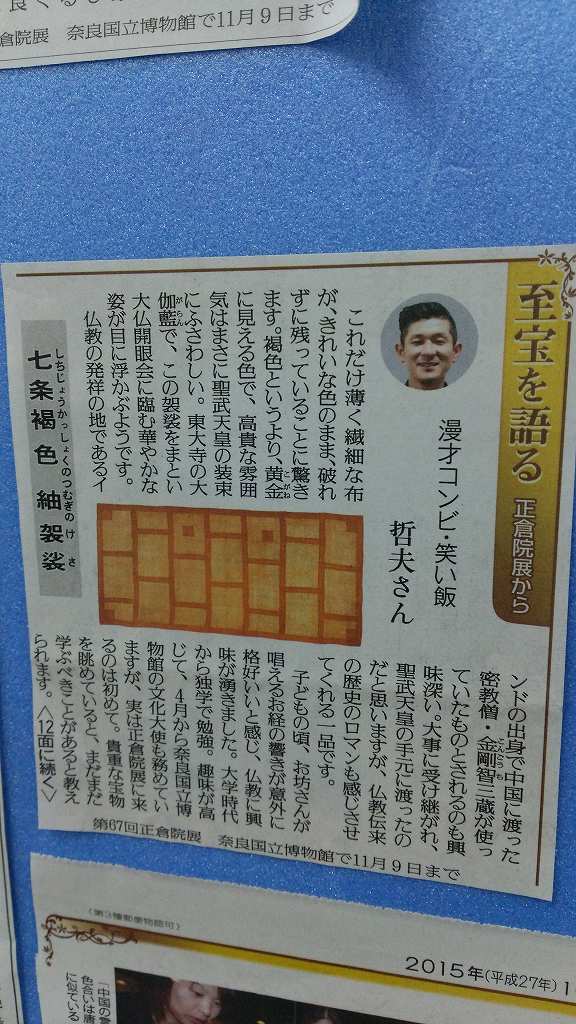 良くるし
正倉院展 奈良国立博物館で11月9日まで
至宝を語る 正倉院展から
漫才コンビ・笑い飯
哲夫さん
これだけ薄く繊細な布
が、きれいな色のまま、破れ
ずに残っていることに驚き
ます。褐色というより、黄金
こがね
に見える色で、高貴な雰囲
気はまさに聖武天皇の装束
にふさわしい。東大寺の大
伽藍で、この袈裟をまとい
がらん
大仏開眼会に臨む華やかな
姿が目に浮かぶようです。
仏教の発祥の地であるイ
ンドの出身で中国に渡った
密教僧・金剛智三蔵が使っ
こんごうち
ていたものとされるのも興
味深い。大事に受け継がれ、
聖武天皇の手元に渡ったの
だと思いますが、仏教伝来
の歴史のロマンも感じさせ
てくれる一品です。
子どもの頃、お坊さんが
唱えるお経の響きが意外に
格好いいと感じ、仏教に興
味が湧きました。大学時代
から独学で勉強。趣味が高
じて、4月から奈良国立博
物館の文化大使も務めてい
ますが、実は正倉院展に来
るのは初めて。貴重な宝物
を眺めていると、まだまだ
学ぶべきことがあると教え
られます。〈12面に続く〉
しちじょうかっしょくのつむぎのけさ
七条褐色紬袈裟
第67回正倉院展 奈良国立博物館で11月9日まで
(第3種郵便物認可)
2015年(平成27年)1
「中国の
色合いは唐
に似ている